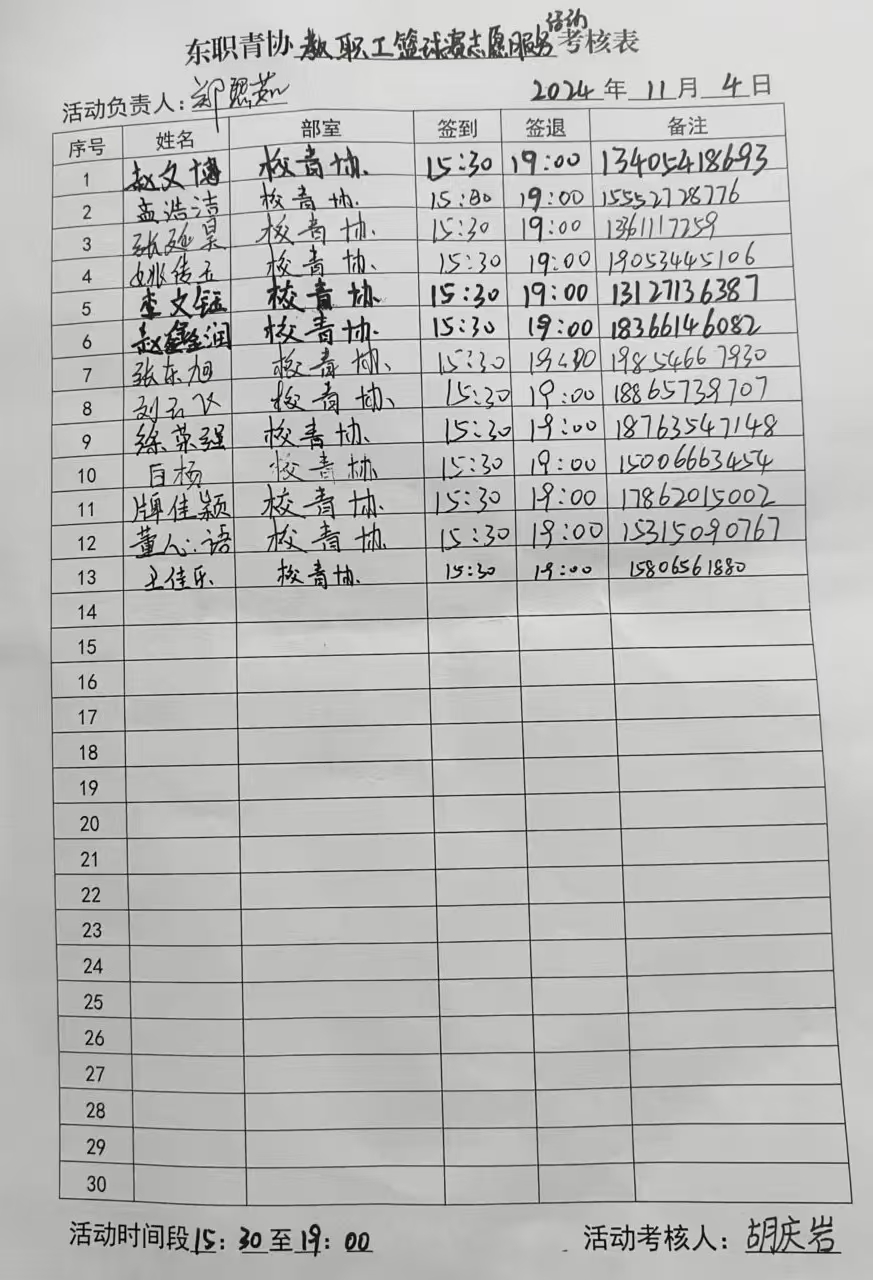 东职青协教职工篮球赛志愿服务活动考核表
活动负责人：郑
2024年11月4日
序号 姓名 部室 签到 签退 备注
1 赵文博 校青协. 15:30 19:00 13405418693
2 孟浩洁 校青协. 15:30 19:00 15552728776
3 张延昊 校青协. 15:30 19:00 1361117259
4 姚传 校青协、 15:30 19:00 19053445106
5 李文钰 校青协 15:30 19:00 13127136387
6 赵鑫润 校青协. 15:30 19:00 18366146082
7 张东旭 校青协、 15:30 19:00 19854667930
8 刘云飞 校青协、 15:30 19:00 18865739707
9 徐荣强 校青协. 15:30 19:00 18763547148
10 白杨 校青协. 15:30 19:00 15006663454
11 牌佳颖 校青协. 15:30 19:00 17862015002
12 董 语 校青协. 15:30 19:00 15315090767
13 王佳乐 校青协. 15:30 19:00 15806561880
14
15
16
17
18
19
20
21
22
23
24
25
26
27
28
29
30
活动时间段15：30至19：00 活动考核人：胡庆岩